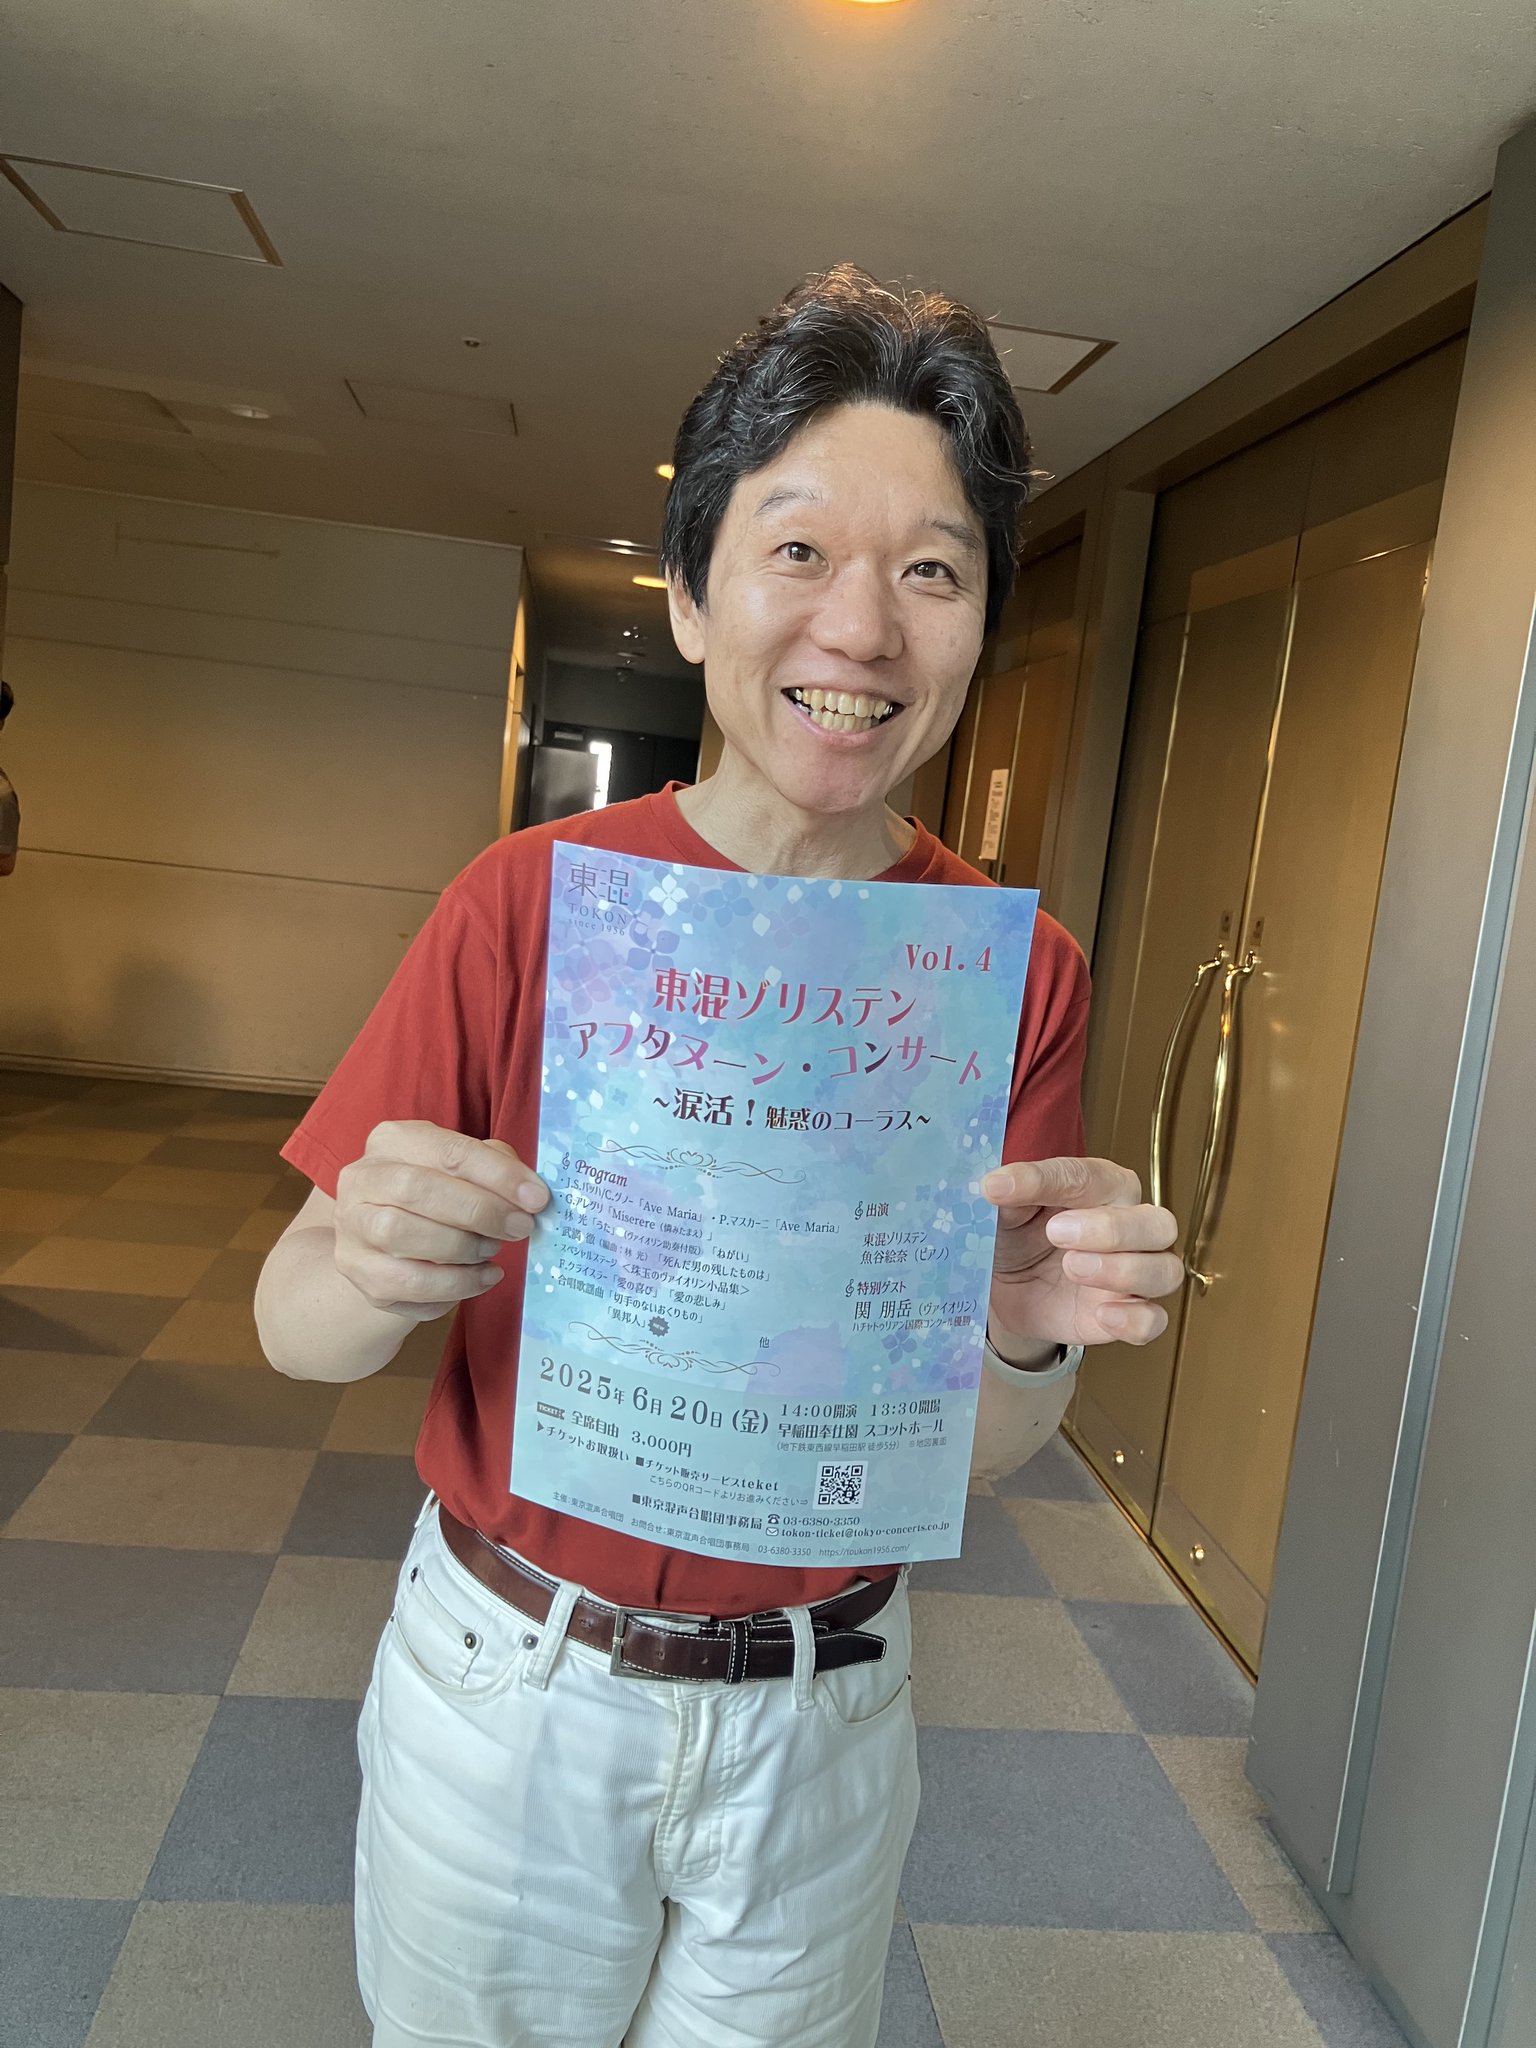 東混
TOKON
since 1956
Vol.4
東混ゾリステン
アフタヌーン・コンサート
~涙活!魅惑のコーラス~
Program
・J.S.バッハ/C.グノー「Ave Maria」・P.マスカーニ「Ave Maria」
・G.アレグリ「Miserere(憐みたまえ)」
・林 光「うた」(ヴァイオリン助奏付版)「ねがい」
・武満 徹(編曲:林 光)「死んだ男の残したものは」
・スペシャルステージ<珠玉のヴァイオリン小品集>
F.クライスラー「愛の喜び」「愛の悲しみ」
・合唱歌謡曲「切手のないおくりもの」
「異邦人」
他
出演
東混ゾリステン
魚谷絵奈(ピアノ)
特別ゲスト
関 朋岳(ヴァイオリン)
ハチャトゥリアン国際コンクール優勝
2025年6月20日(金)
14:00開演 13:30開場
早稲田奉仕園 スコットホール
(地下鉄東西線早稲田駅 徒歩5分) ※地図裏面
TICKET 全席自由 3,000円
▶チケットお取扱い ■チケット販売サービスteket
こちらのQRコードよりお進みください⇒
■東京混声合唱団事務局 ☎03-6380-3350
tokon-ticket@tokyo-concerts.co.jp
主催:東京混声合唱団 お問合せ:東京混声合唱団事務局 03-6380-3350 https://toukon1956.com/